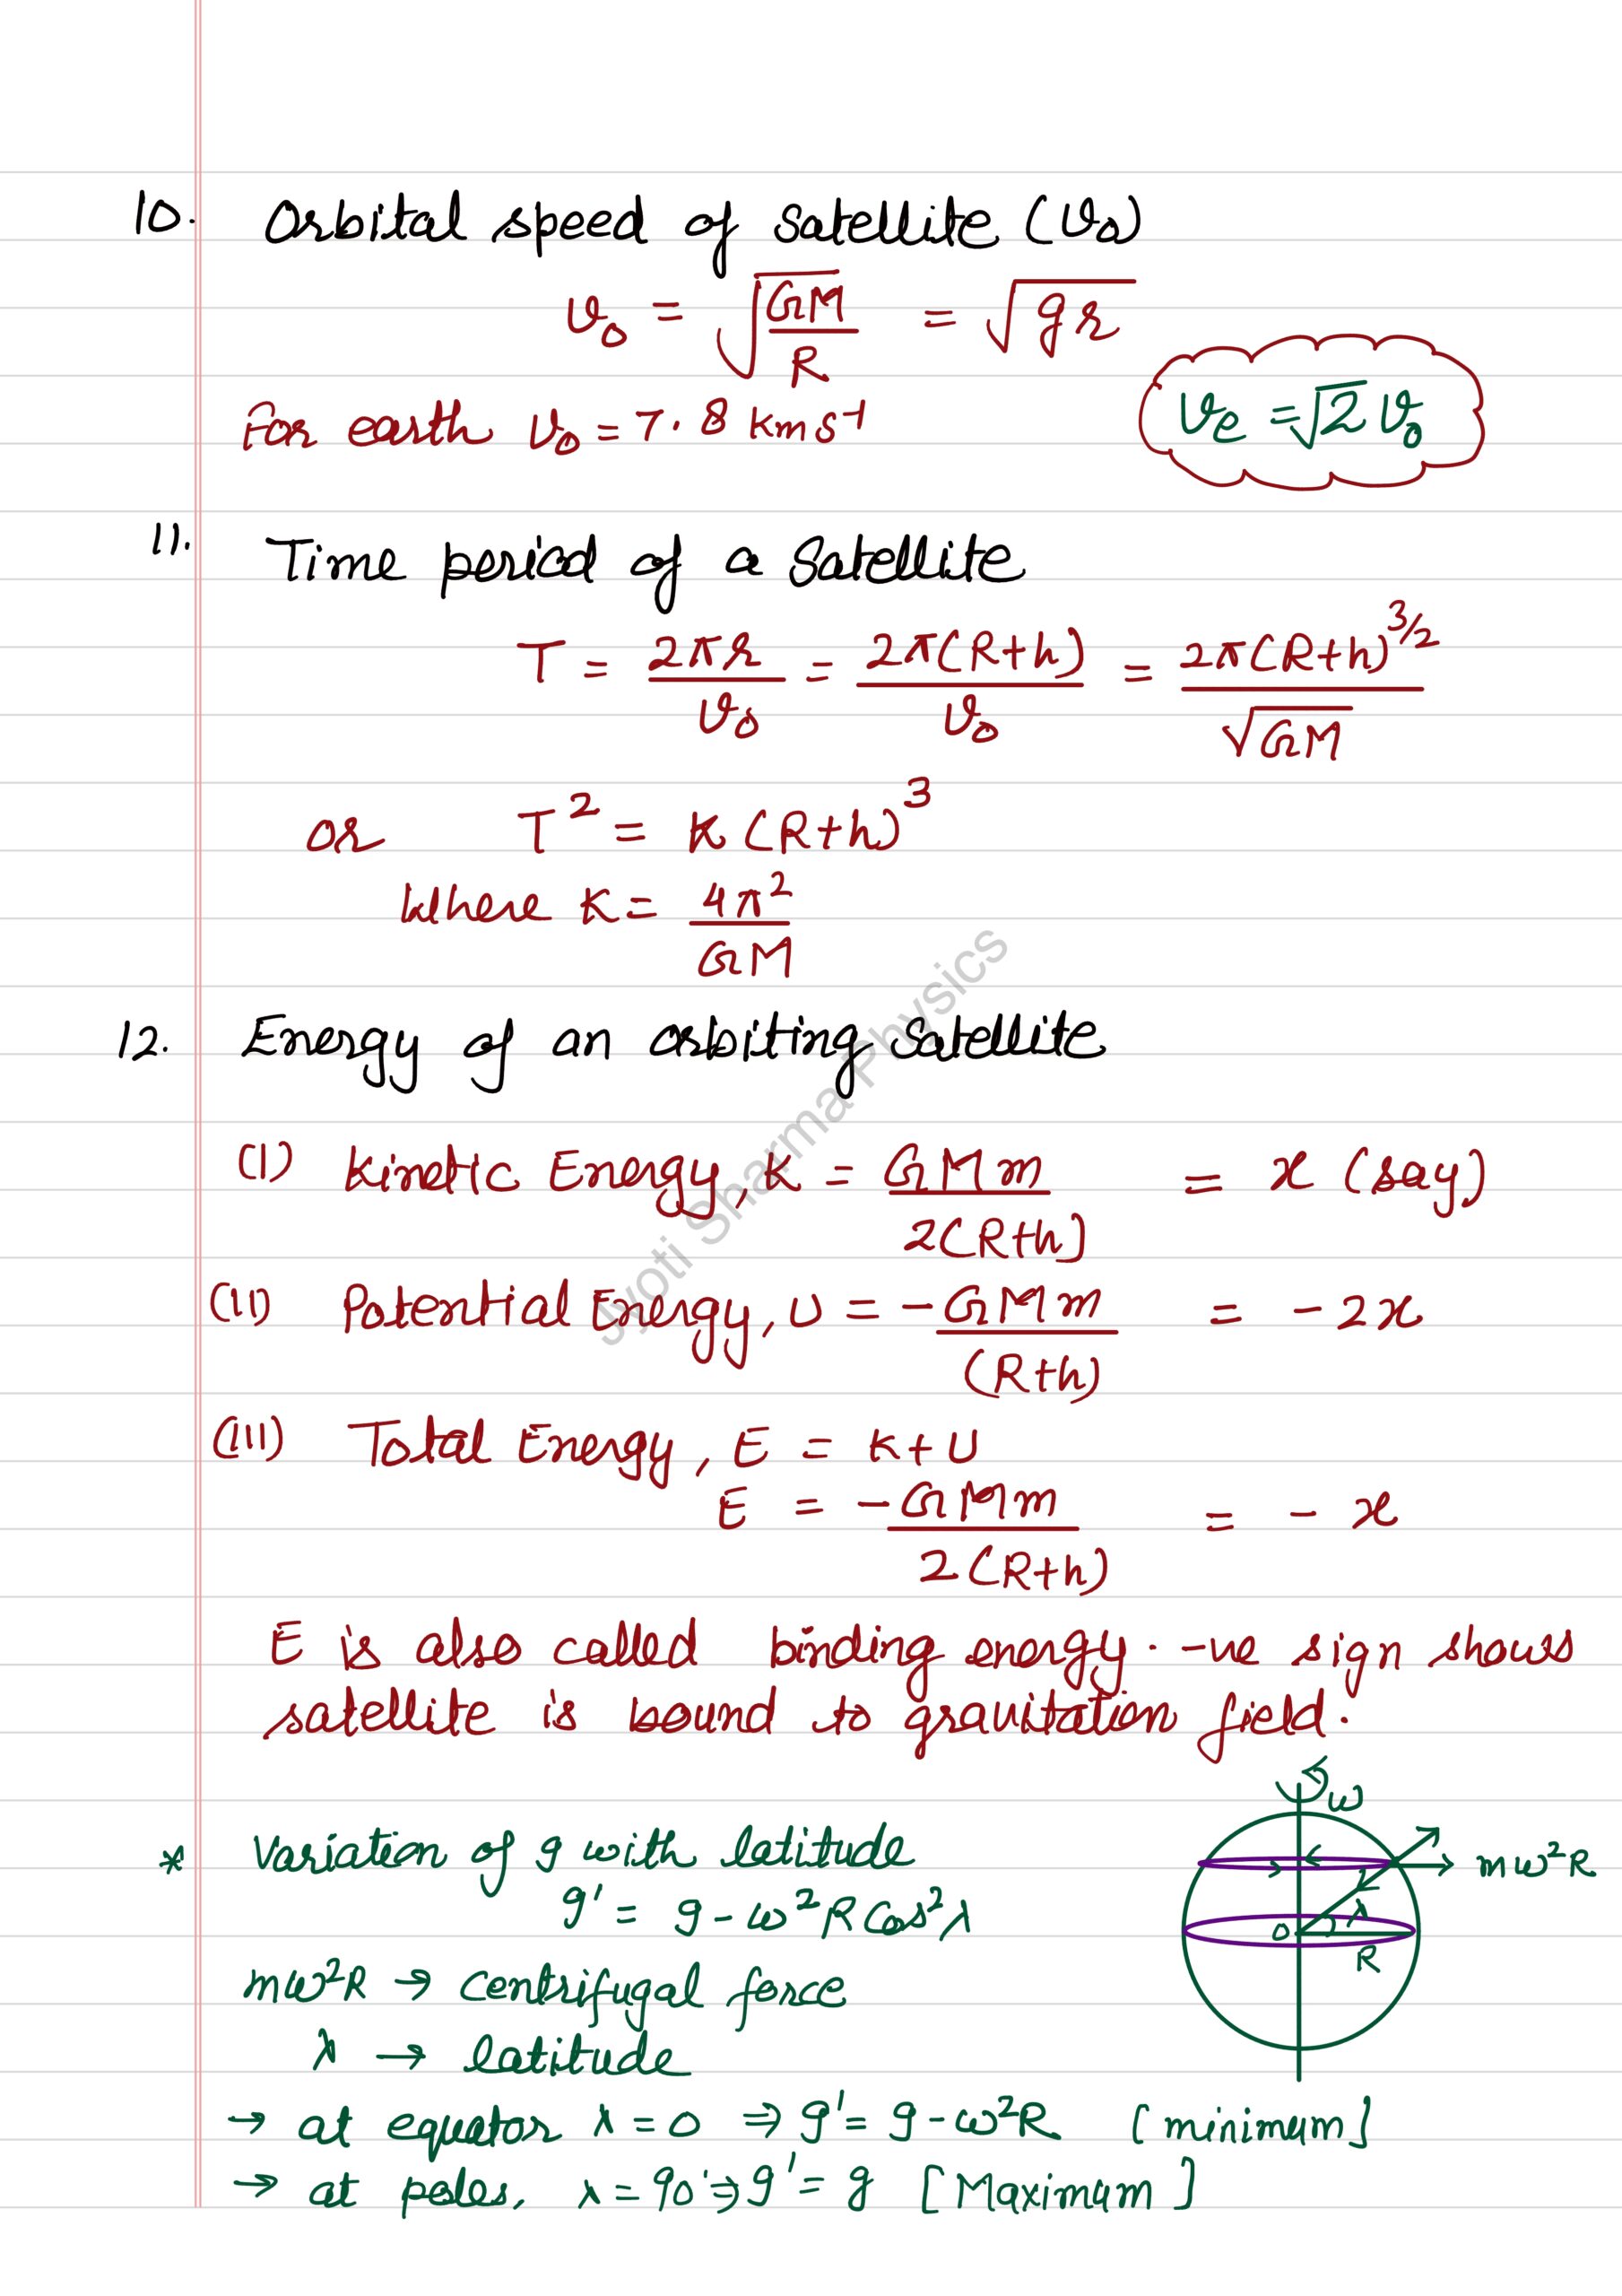 10. Orbital speed of satellite (v₀)
v₀ = √(GM/R) = √(gr)
For earth v₀ = 7.8 kms⁻¹
vₑ = √2 v₀
11. Time period of a satellite
T = 2πr/v₀ = 2π(R+h)/v₀ = 2π(R+h)^(3/2)/√(GM)
or T² = K(R+h)³
where K = 4π²/GM
12. Energy of an orbiting satellite
(I) Kinetic Energy, K = GMm/2(R+h) = x (say)
(II) Potential Energy, U = -GMm/(R+h) = -2x
(III) Total Energy, E = K+U
E = -GMm/2(R+h) = -x
E is also called binding energy. -ve sign shows
satellite is bound to gravitation field.
* Variation of g with latitude
g' = g - ω²R Cos²λ
mω²R → centrifugal force
λ → latitude
→ at equator λ = 0 ⇒ g' = g - ω²R [minimum]
→ at poles, λ = 90° ⇒ g' = g [Maximum]
ω
mω²R
λ
O
R
Jyoti Sharma Physics